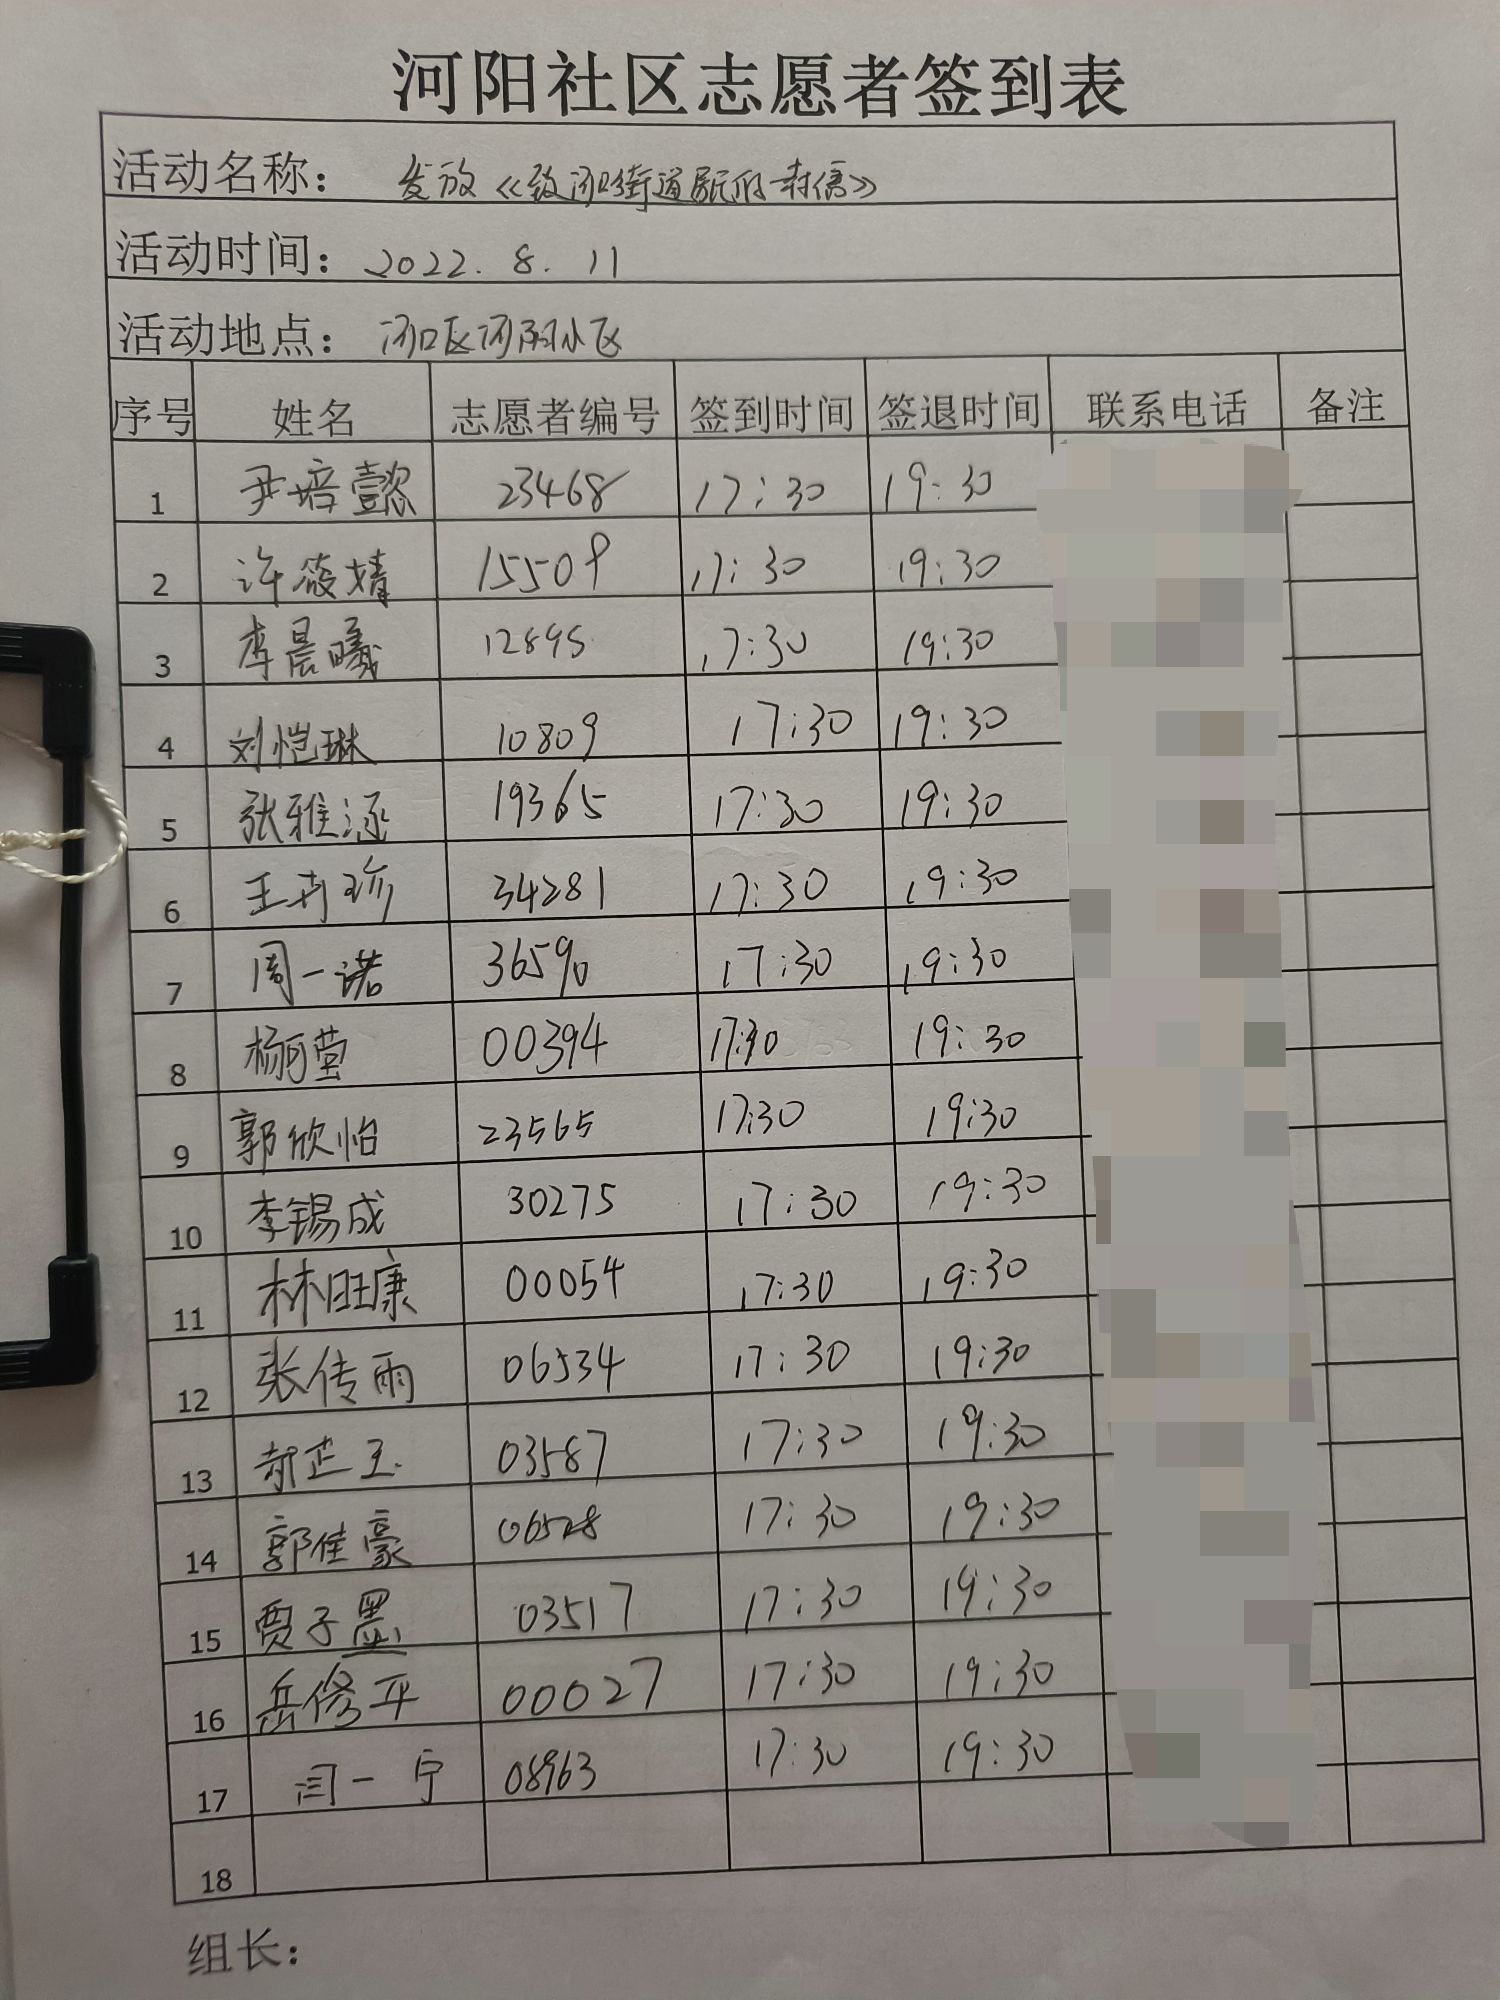 河阳社区志愿者签到表
活动名称： 发放《致河口街道居民的一封信》
活动时间：2022.8.11
活动地点： 河口区河阳小区
序号 姓名 志愿者编号 签到时间 签退时间 联系电话 备注
1 尹培懿 23468 17:30 19:30
2 许筱婧 15509 17:30 19:30
3 李晨曦 12895 17:30 19:30
4 刘恺琳 10809 17:30 19:30
5 张雅涵 19365 17:30 19:30
6 王卉珍 34281 17:30 19:30
7 周一诺 36590 17:30 19:30
8 杨可莹 00394 17:30 19:30
9 郭欣怡 23565 17:30 19:30
10 李锡成 30275 17:30 19:30
11 林旺康 00054 17:30 19:30
12 张传雨 06534 17:30 19:30
13 03587 17:30 19:30
14 郭佳豪 06528 17:30 19:30
15 贾子墨 03517 17:30 19:30
16 岳修平 00027 17:30 19:30
17 闫一宁 08963 17:30 19:30
18
组长：